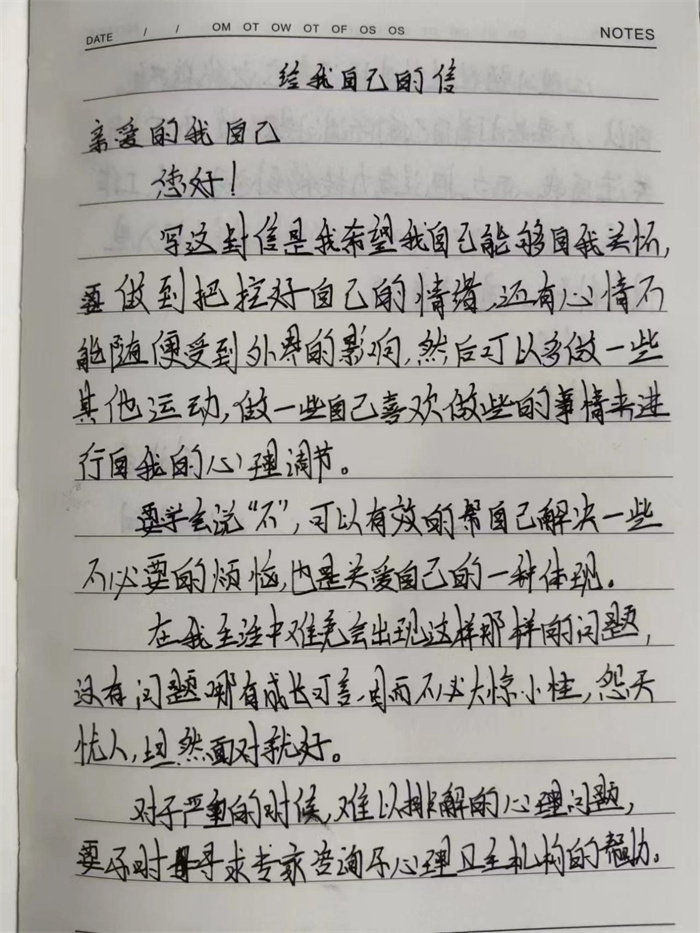 DATE / / OM OT OW OT OF OS OS NOTES
给我自己的信
亲爱的我自己
您好!
写这封信是我希望我自己能够自我关怀,
要做到把控好自己的情绪,还有心情不
能随便受到外界的影响,然后可以多做一些
其他运动,做一些自己喜欢做些的事情来进
行自我的心理调节。
要学会说“不”,可以有效的帮自己解决一些
不必要的烦恼,也是关爱自己的一种体现。
在我生活中难免会出现这样那样的问题,
没有问题哪有成长可言,因而不必大惊小怪,怨天
忧人,坦然面对就好。
对于严重的时候,难以排解的心理问题,
要及时寻求专家咨询及心理卫生机构的帮助。